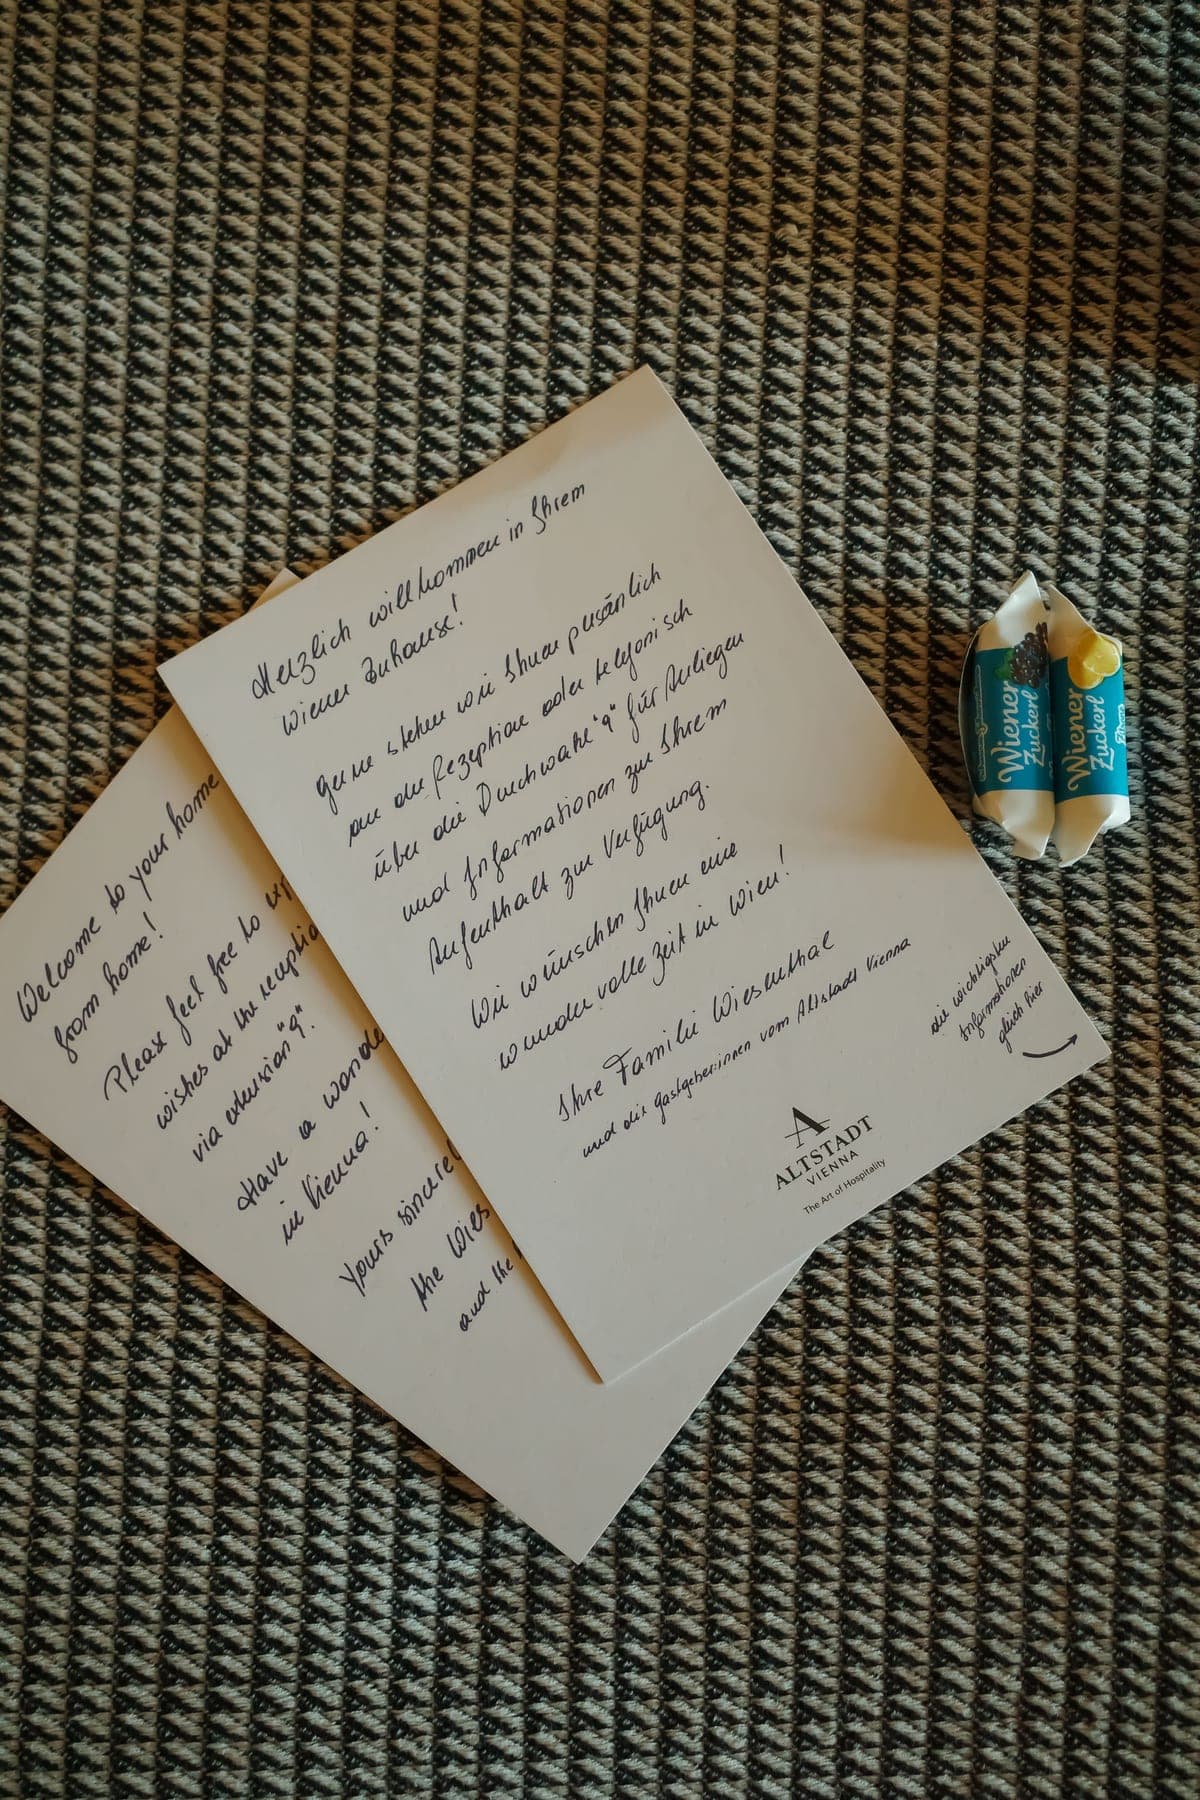 Herzlich willkommen in Ihrem
Wiener Zuhause!
gerne stehen wir Ihnen persönlich
an der Rezeption oder telefonisch
über die Durchwahl "9" für Anliegen
und Informationen zu Ihrem
Aufenthalt zur Verfügung.
Wir wünschen Ihnen eine
wundervolle Zeit in Wien!
Ihre Familie Wiesenthal
und die gastgeber:innen vom Altstadt Vienna
die wichtigsten
Informationen
gleich hier
A
ALTSTADT
VIENNA
The Art of Hospitality
Welcome to your home
from home!
Please feel free to
wishes at the
via extension "9".
Have a
in Vienna!
Yours
the
and the
Wiener
Zuckerl
Wiener
Zuckerl
Zitrone